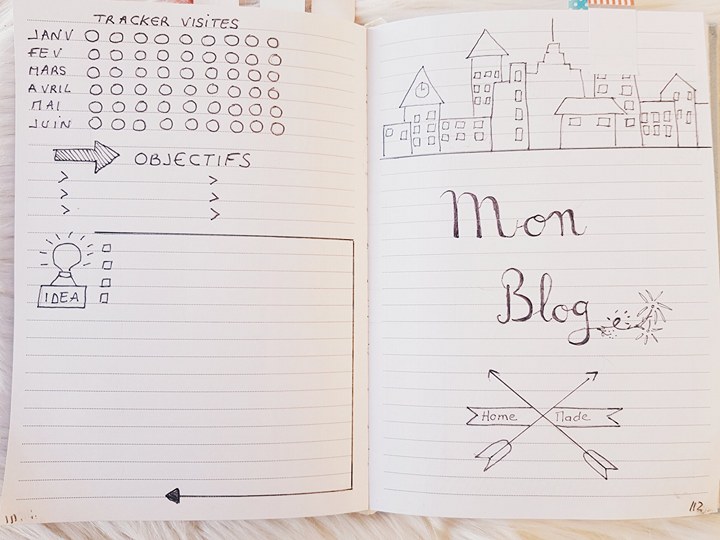 TRACKER VISITES
JANV
FEV
MARS
AVRIL
MAI
JUIN
OBJECTIFS
IDEA
Mon
Blog
Home Made
112